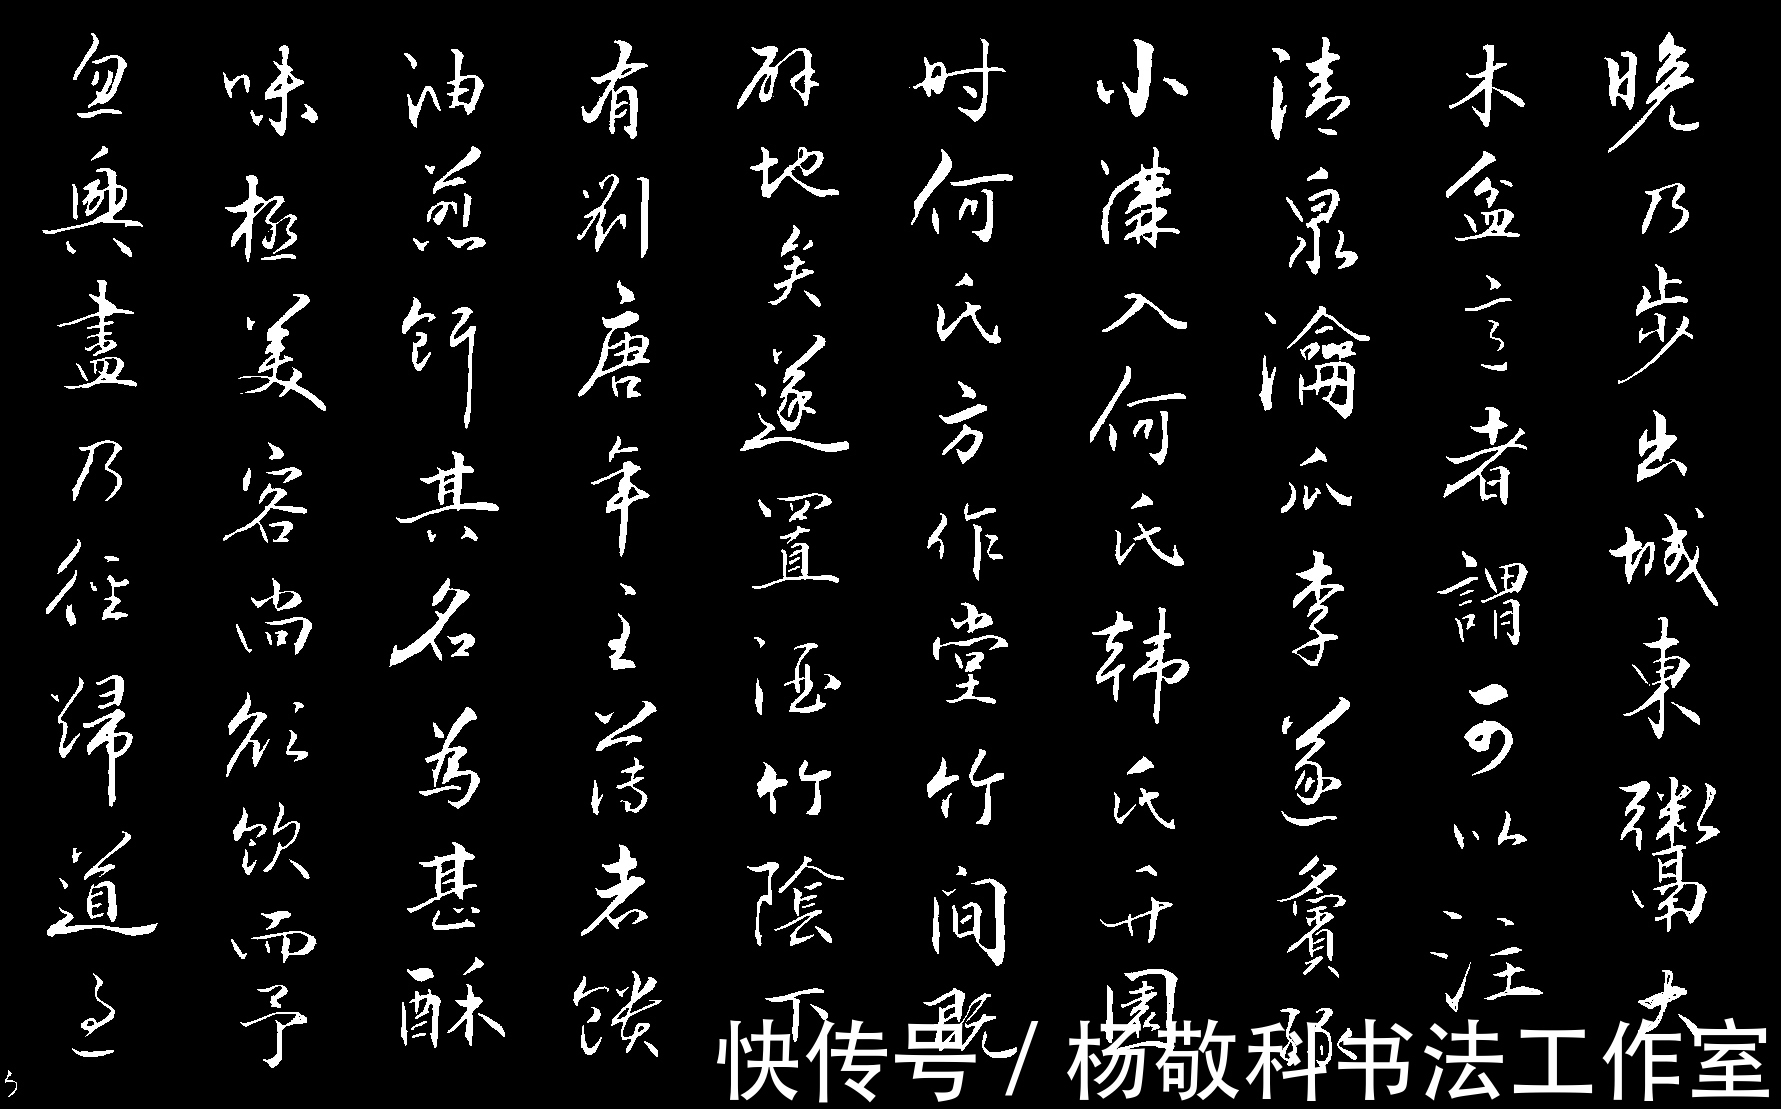 晚乃步出城東鬻大
木盆言者謂可以注
清泉瀹瓜李遂夤緣
小溝入何氏韩氏竹園
时何氏方作堂竹间既
辟地矣遂置酒竹陰下
有劉唐年主薄者馈
油煎饵其名為甚酥
味極美客尚欲飲而予
忽興盡乃徑歸道過
快传号 / 杨敬科书法工作室